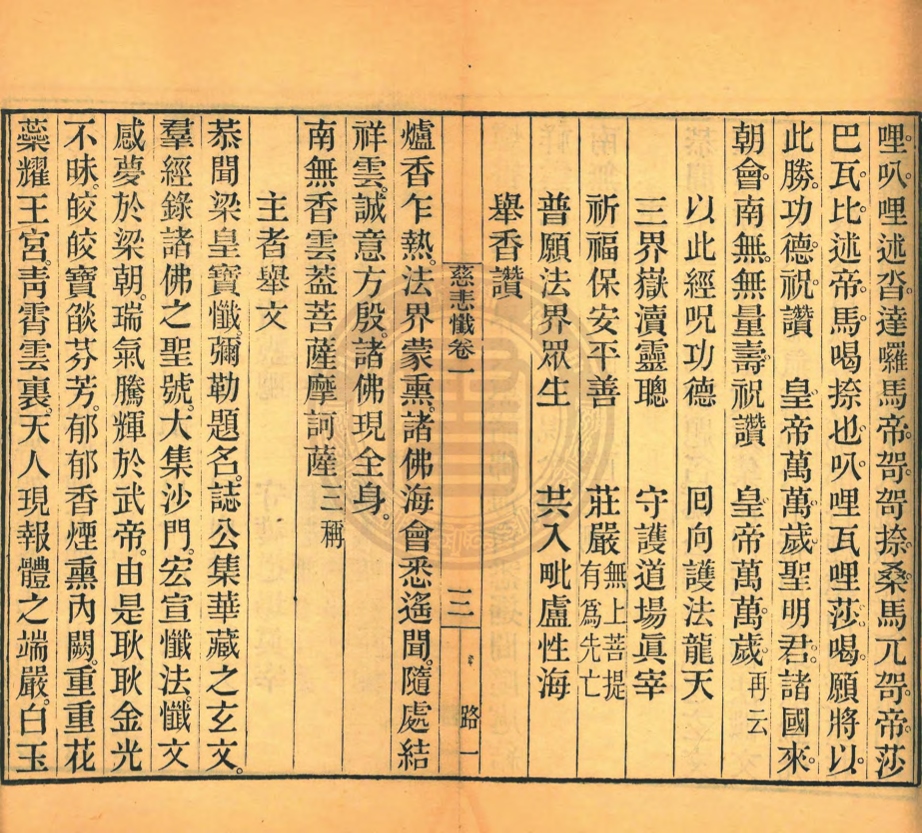 哩叺哩述沓達囉馬帝哿哿捺桑馬兀哿帝莎
巴瓦比述帝馬喝捺也叺哩瓦哩莎喝願將以
此勝功德祝讚　皇帝萬萬歲聖明君諸國來
朝會南無無量壽祝讚　皇帝萬萬歲再云
以此經呪功德　回向護法龍天
三界嶽瀆靈聰　守護道場眞宰
祈福保安平善　莊嚴無上菩提有爲先亡
普願法界眾生　共入毗盧性海
舉香讚
慈悲懺卷一　三　路一
爐香乍熱。法界蒙熏。諸佛海會悉遙聞。隨處結
祥雲。誠意方殷。諸佛現全身。
南無香雲蓋菩薩摩訶薩三稱
主者舉文
恭聞梁皇寶懺。彌勒題名。誌公集華藏之玄文。
羣經錄諸佛之聖號。大集沙門。宏宣懺法。懺文
感夢於梁朝。瑞氣騰輝於武帝。由是耿耿金光
不昧。皎皎寶燄芬芳。郁郁香煙熏內闕。重重花
蘂耀王宮。靑霄雲裏。天人現報體之端嚴。白玉